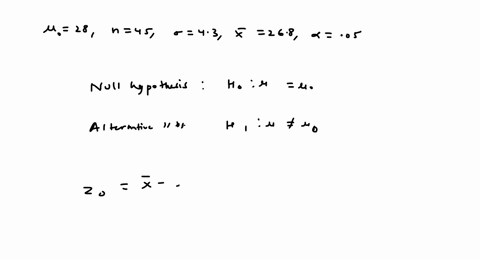 μ₀ = 28, n = 45, σ = 4.3, x̄ = 26.8, α = .05
Null hypothesis : H₀ : μ = μ₀
Alternative " " H₁ : μ ≠ μ₀
z₀ = x̄ - .